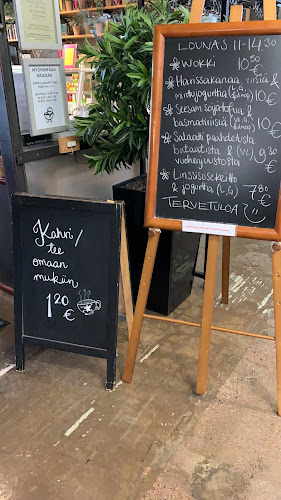 LOUNAS 11-14.30
Wokki 10.50
* Harissakanaa riisiä &
minttujogurttia (L,G) 10€
* Seesam soijatofua &
basmatiriisiä 10€
* Salaatti paahdetusta
bataatista & (VL) 9.30
vuohenjuustosta €
* Linssisosekeitto
& jogurtti (L,G) 7.80
€
TERVETULOA
Kahvi/
tee
omaan
mukiin
1.20
€